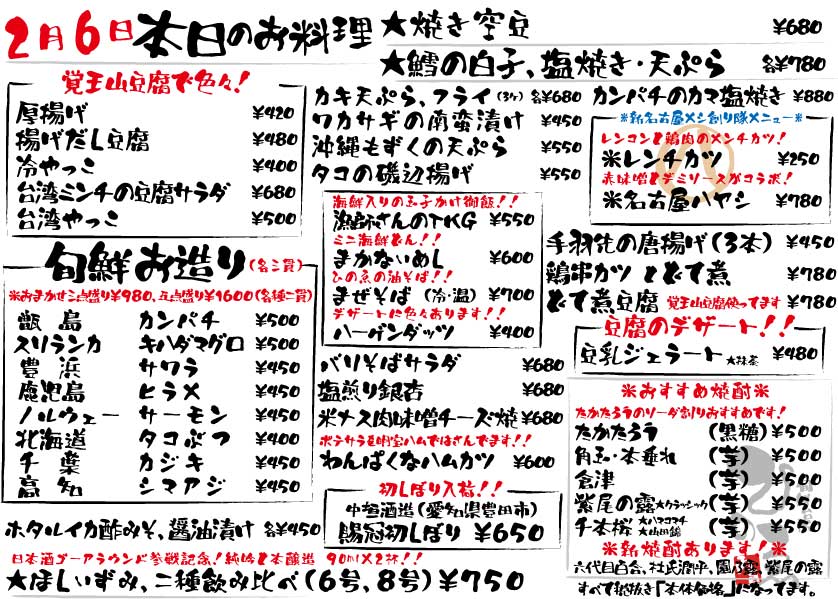 2月6日本日のお料理
★焼き空豆 ¥680
★鱈の白子、塩焼き・天ぷら 各¥780
覚王山豆腐で色々!
厚揚げ ¥420
揚げだし豆腐 ¥480
冷やっこ ¥400
台湾ミンチの豆腐サラダ ¥680
台湾やっこ ¥500
カキ天ぷら、フライ(3ケ) 各¥680
ワカサギの南蛮漬け ¥450
沖縄もずくの天ぷら ¥550
タコの磯辺揚げ ¥550
カンパチのカマ塩焼き ¥880
※新名古屋メシ創り隊メニュー※
レンコンと鶏肉のメンチカツ!
米レンチカツ ¥250
赤味噌とデミソースがコラボ!
米名古屋ハヤシ ¥780
旬鮮お造り(各二貫)
※おまかせ三点盛り¥980、五点盛り¥1600(各種二貫)
甑島 カンパチ ¥500
スリランカ キハダマグロ ¥500
豊浜 サワラ ¥450
鹿児島 ヒラメ ¥450
ノルウェー サーモン ¥450
北海道 タコぶつ ¥400
千葉 カジキ ¥450
高知 シマアジ ¥450
ホタルイカ酢みそ、醤油漬け 各¥450
海鮮入りの玉子かけ御飯!!
漁師さんのTKG ¥550
ミニ海鮮どん!!
まかないめし ¥600
ひの魚の油そば!!
まぜそば(冷・温) ¥700
デザートに色々あります!!
ハーゲンダッツ ¥400
バリそばサラダ ¥680
塩煎り銀杏 ¥680
米ナス肉味噌チーズ焼 ¥680
ポテサラを明宝ハムではさんでます!!
わんぱくなハムカツ ¥600
初しぼり入荷!!
中垣酒造(愛知県豊田市)
賜冠初しぼり ¥650
手羽先の唐揚げ(3本) ¥450
鶏串カツ とどて煮 ¥780
どて煮豆腐 覚王山豆腐使ってます ¥780
豆腐のデザート!!
豆乳ジェラート ★抹茶 ¥480
※おすすめ焼酎※
たかたろうのソーダ割りおすすめです!
たかたろう (黒糖) ¥500
角玉・本垂れ (芋) ¥500
倉津 (芋) ¥500
紫尾の露★クラッシック(芋) ¥550
千本桜 ★ハマコマチ ★山田錦 (芋) ¥550
※新焼酎あります!※
六代目百合、杜氏潤平、園乃露、紫尾の露
すべて税抜き「本体価格」になってます。
日本酒ゴーアラウンド参戦記念!純吟と本醸造 90ml×2杯!!
★ほしいずみ、二種飲み比べ(6号、8号)¥750